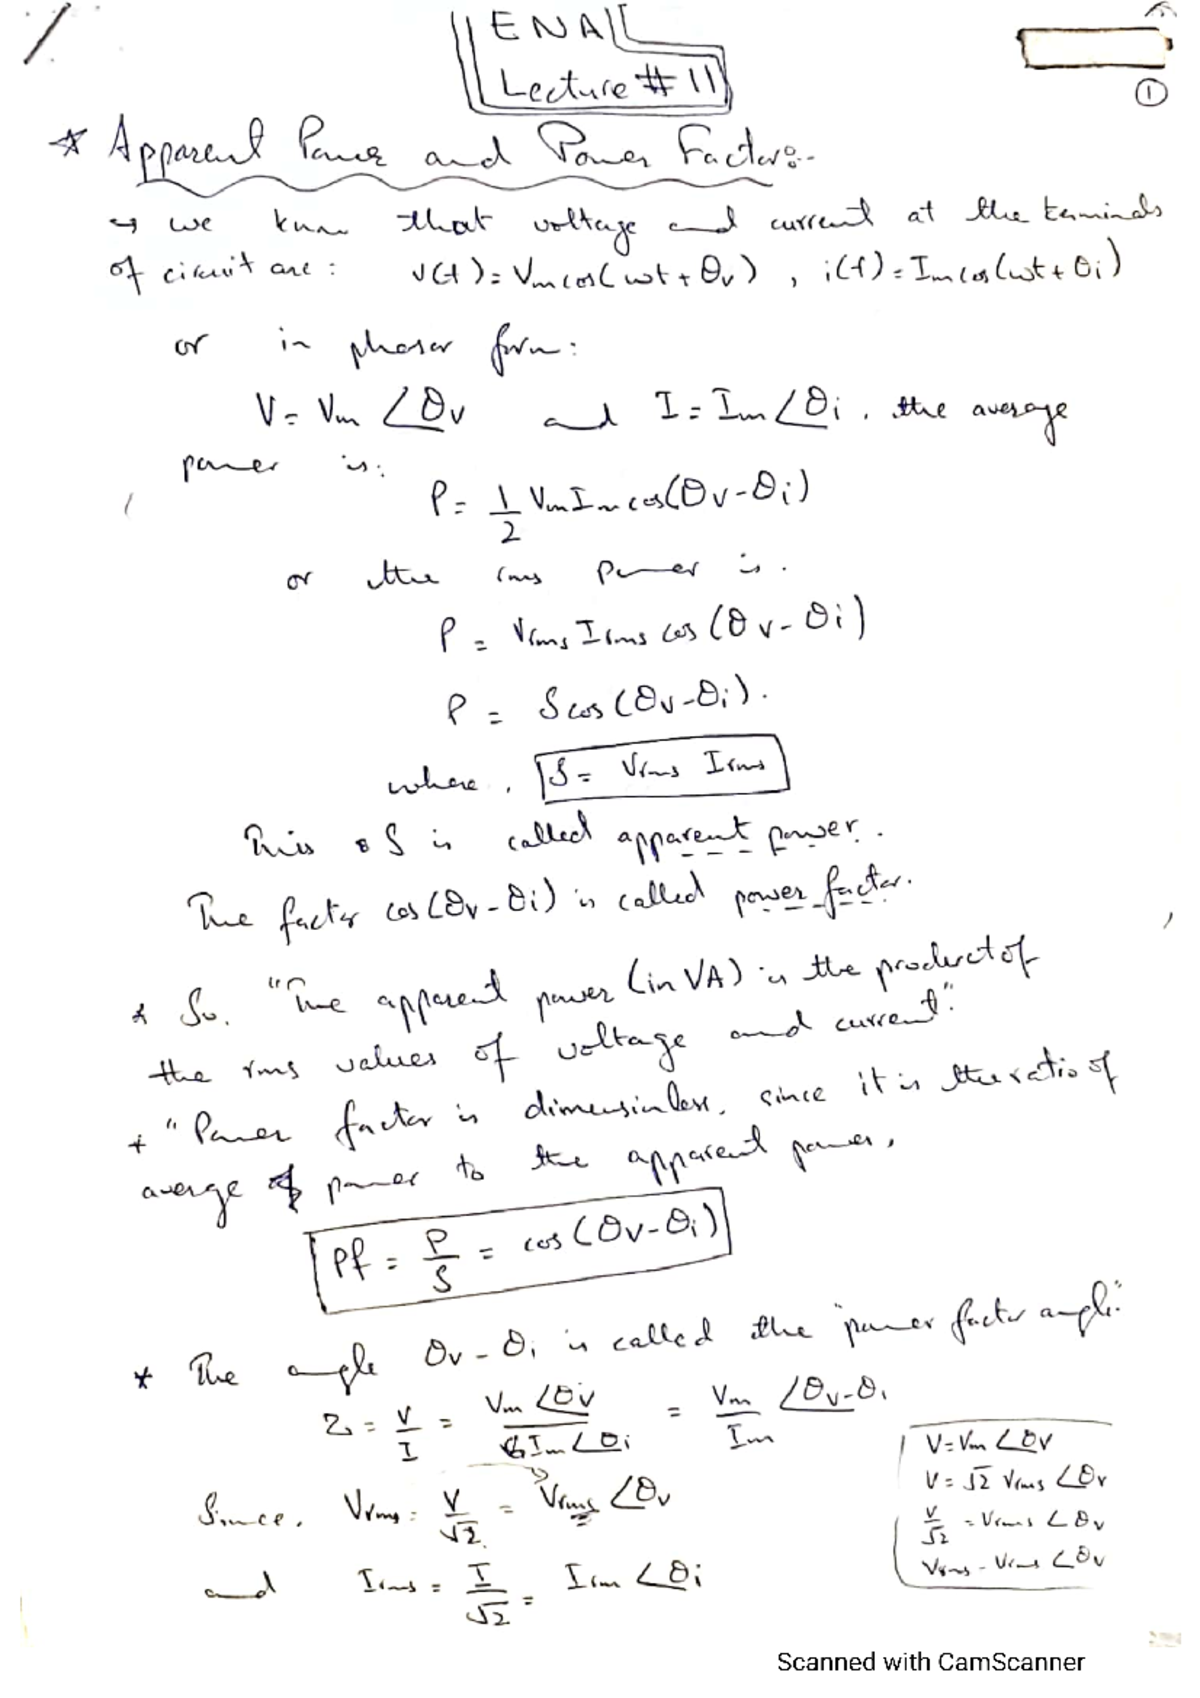 ENA
Lecture # 11
①
* Apparent Power and Power Factor:-
↳ we know that voltage and current at the terminals
of circuit are : v(t) = Vm cos(wt + θv) , i(t) = Im cos(wt + θi)
or in phasor form:
V = Vm ∠θv and I = Im ∠θi . the average
power is:
P = 1/2 Vm Im cos(θv - θi)
or the rms power is .
P = Vrms Irms cos (θv - θi)
P = S cos (θv - θi) .
where , S = Vrms Irms
This S is called apparent power .
The factor cos (θv - θi) is called power factor.
* So. "The apparent power (in VA) is the product of
the rms values of voltage and current".
* "Power factor is dimensinless, since it is the ratio of
average power to the apparent power,
Pf = P/S = cos (θv - θi)
* The angle θv - θi is called the "power factor angle."
Z = V/I = Vm ∠θv / Im ∠θi = Vm/Im ∠θv - θi
Since. Vrms = V/√2 = Vrms ∠θv
and Irms = I/√2 = Irm ∠θi
V = Vm ∠θv
V = √2 Vrms ∠θv
V/√2 = Vrms ∠θv
Vrms = Vrms ∠θv
Scanned with CamScanner